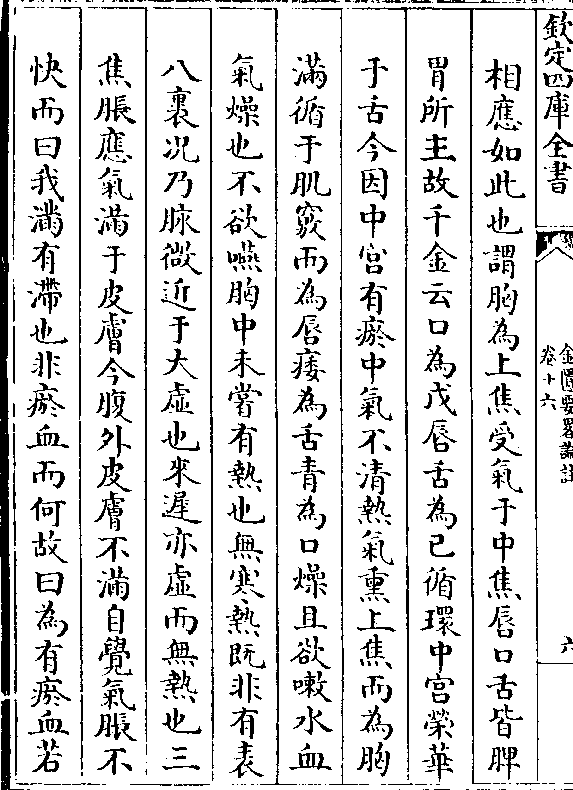 欽定四庫全書
金匱要畧論註
卷十六
六
相應如此也謂胸為上焦受氣于中焦唇口舌皆脾
胃所主故千金云口為戊唇舌為已循環中宮榮華
于舌今因中宮有瘀中氣不清熱氣熏上焦而為胸
滿循于肌竅而為唇痿為舌青為口燥且欲嗽水血
氣燥也不欲嚥胸中未嘗有熱也無寒熱既非有表
八裏况乃脉微近于大虚也來遲亦虚而無熱也三
焦脹應氣滿于皮膚今腹外皮膚不滿自覺氣脹不
快而曰我滿有滯也非瘀血而何故曰為有瘀血若